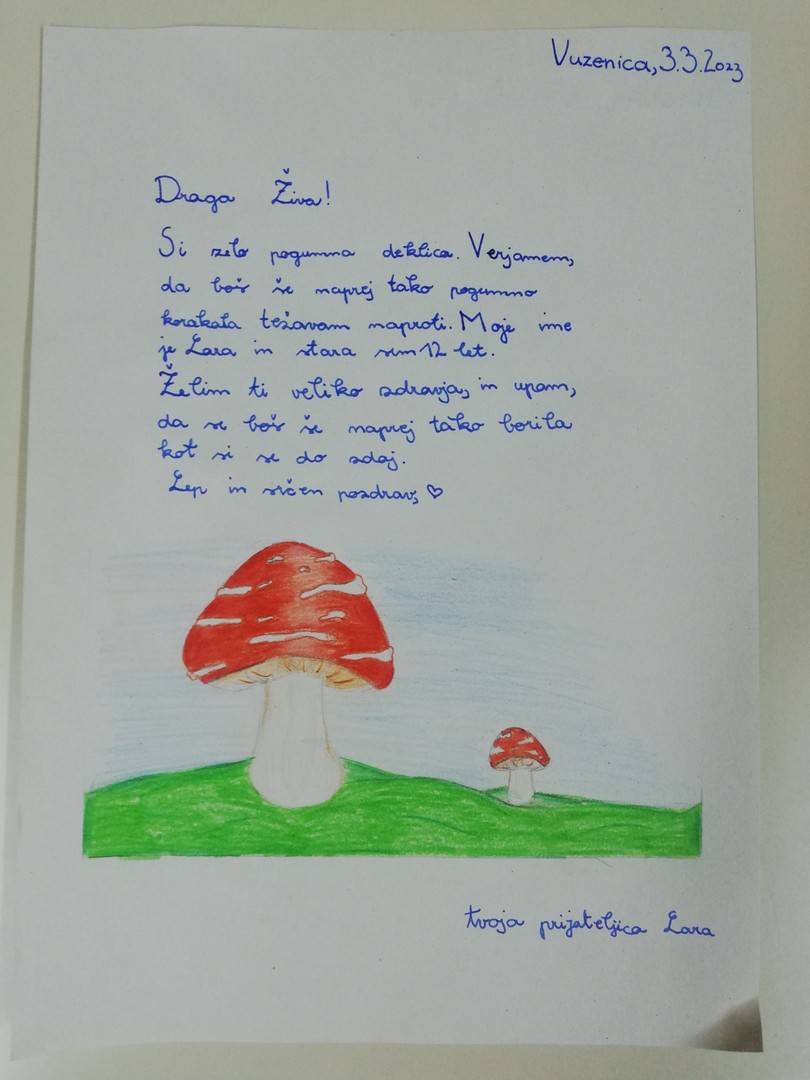 Vuzenica, 3.3.2023
Draga Živa!
Si zelo pogumna deklica. Verjamem,
da boš še naprej tako pogumno
korakala težavam naproti. Moje ime
je Lara in stara sem 12 let.
Želim ti veliko zdravja, in upam,
da se boš še naprej tako borila
kot si se do zdaj.
Lep in srčen pozdrav, ♡
tvoja prijateljica Lara